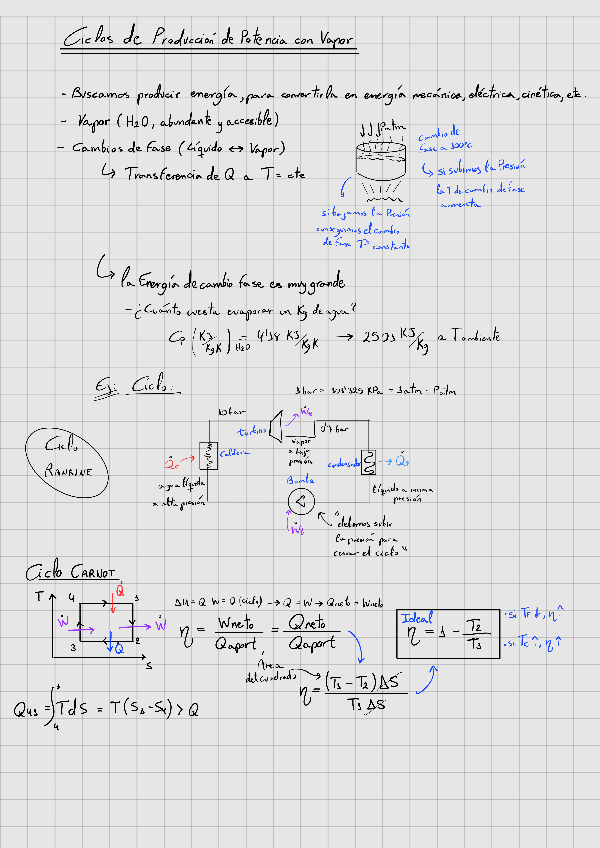 Ciclos de Producción de Potencia con Vapor
- Buscamos producir energía, para convertirla en energía mecánica, eléctrica, cinética, etc.
- Vapor (H2O, abundante y accesible)
- Cambios de Fase (Líquido ↔ Vapor)
↳ Transferencia de Q a T = cte
↓↓↓Patm
cambio de
fase a 100ºC
↳ si subimos la Presión
la T de cambio de fase
aumenta
si bajamos la Presión
conseguimos el cambio
de fase Tª constante
↳ la Energía de cambio fase es muy grande
- ¿Cuánto cuesta evaporar un Kg de agua?
Cp (KJ/KgK) H2O = 4'18 KJ/KgK → 2501 KJ/Kg a T ambiente
Ej: Ciclo:
1 bar = 101'325 KPa = 1 atm = Patm
Ciclo
RANKINE
10 bar
turbina
Ẇt
0'1 bar
Q̇c →
caldera
vapor
a baja
presión
condensador
→ Q̇F
agua líquida
a alta presión
Bomba
líquido a misma
presión
Ẇb
"debemos subir
la presión para
cerrar el ciclo"
Ciclo CARNOT
T
4
1
3
2
S
Q̇
Ẇ
Ẇ
Q̇
ΔU = Q - W = 0 (ciclo) → Q = W → Qneto = Wneto
η = Wneto/Qaport = Qneto/Qaport
Área
del cuadrado
η = (T1 - T2) ΔS / T1 ΔS
Ideal
η = 1 - T2/T1
· si TF ↓, η↑
· si Tc ↑, η↑
Q41 = ∫₄¹ T dS = T (S1 - S4) > Q